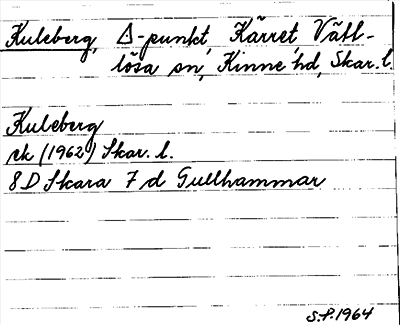 Kuleberg, Δ-punkt, Kärret, Vätt-
lösa sn, Kinne hd, Skar. l.
Kuleberg
ek (1962) Skar. l.
8 D Skara 7 d Gullhammar
S.P. 1964